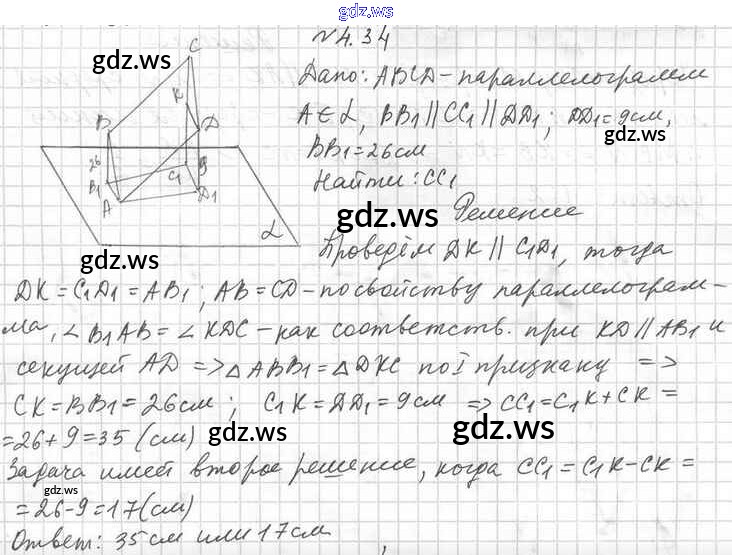 gdz.ws
№4.34
gdz.ws
Дано: ABCD-параллелограмм
A∈α, BB1||CC1||DD1; DD1=9см,
gdz.ws
BB1=26см
Найти: CC1
gdz.ws
Решение
Проведём DK || C1D1, тогда
gdz.ws
C
K
B
D
26
9
B1
C1
A
D1
α
DK=C1D1=AB1; AB=CD-по свойству параллелограм-
ма, ∠B1AB=∠KDC-как соответств. при KD||AB1 и
секущей AD => △ABB1=△DKC по I признаку =>
CK=BB1=26см; C1K=DD1=9см => CC1=C1K+CK=
=26+9=35 (см)
gdz.ws
gdz.ws
Задача имеет второе решение, когда CC1=C1K-CK=
gdz.ws
=26-9=17(см)
Ответ: 35см или 17см